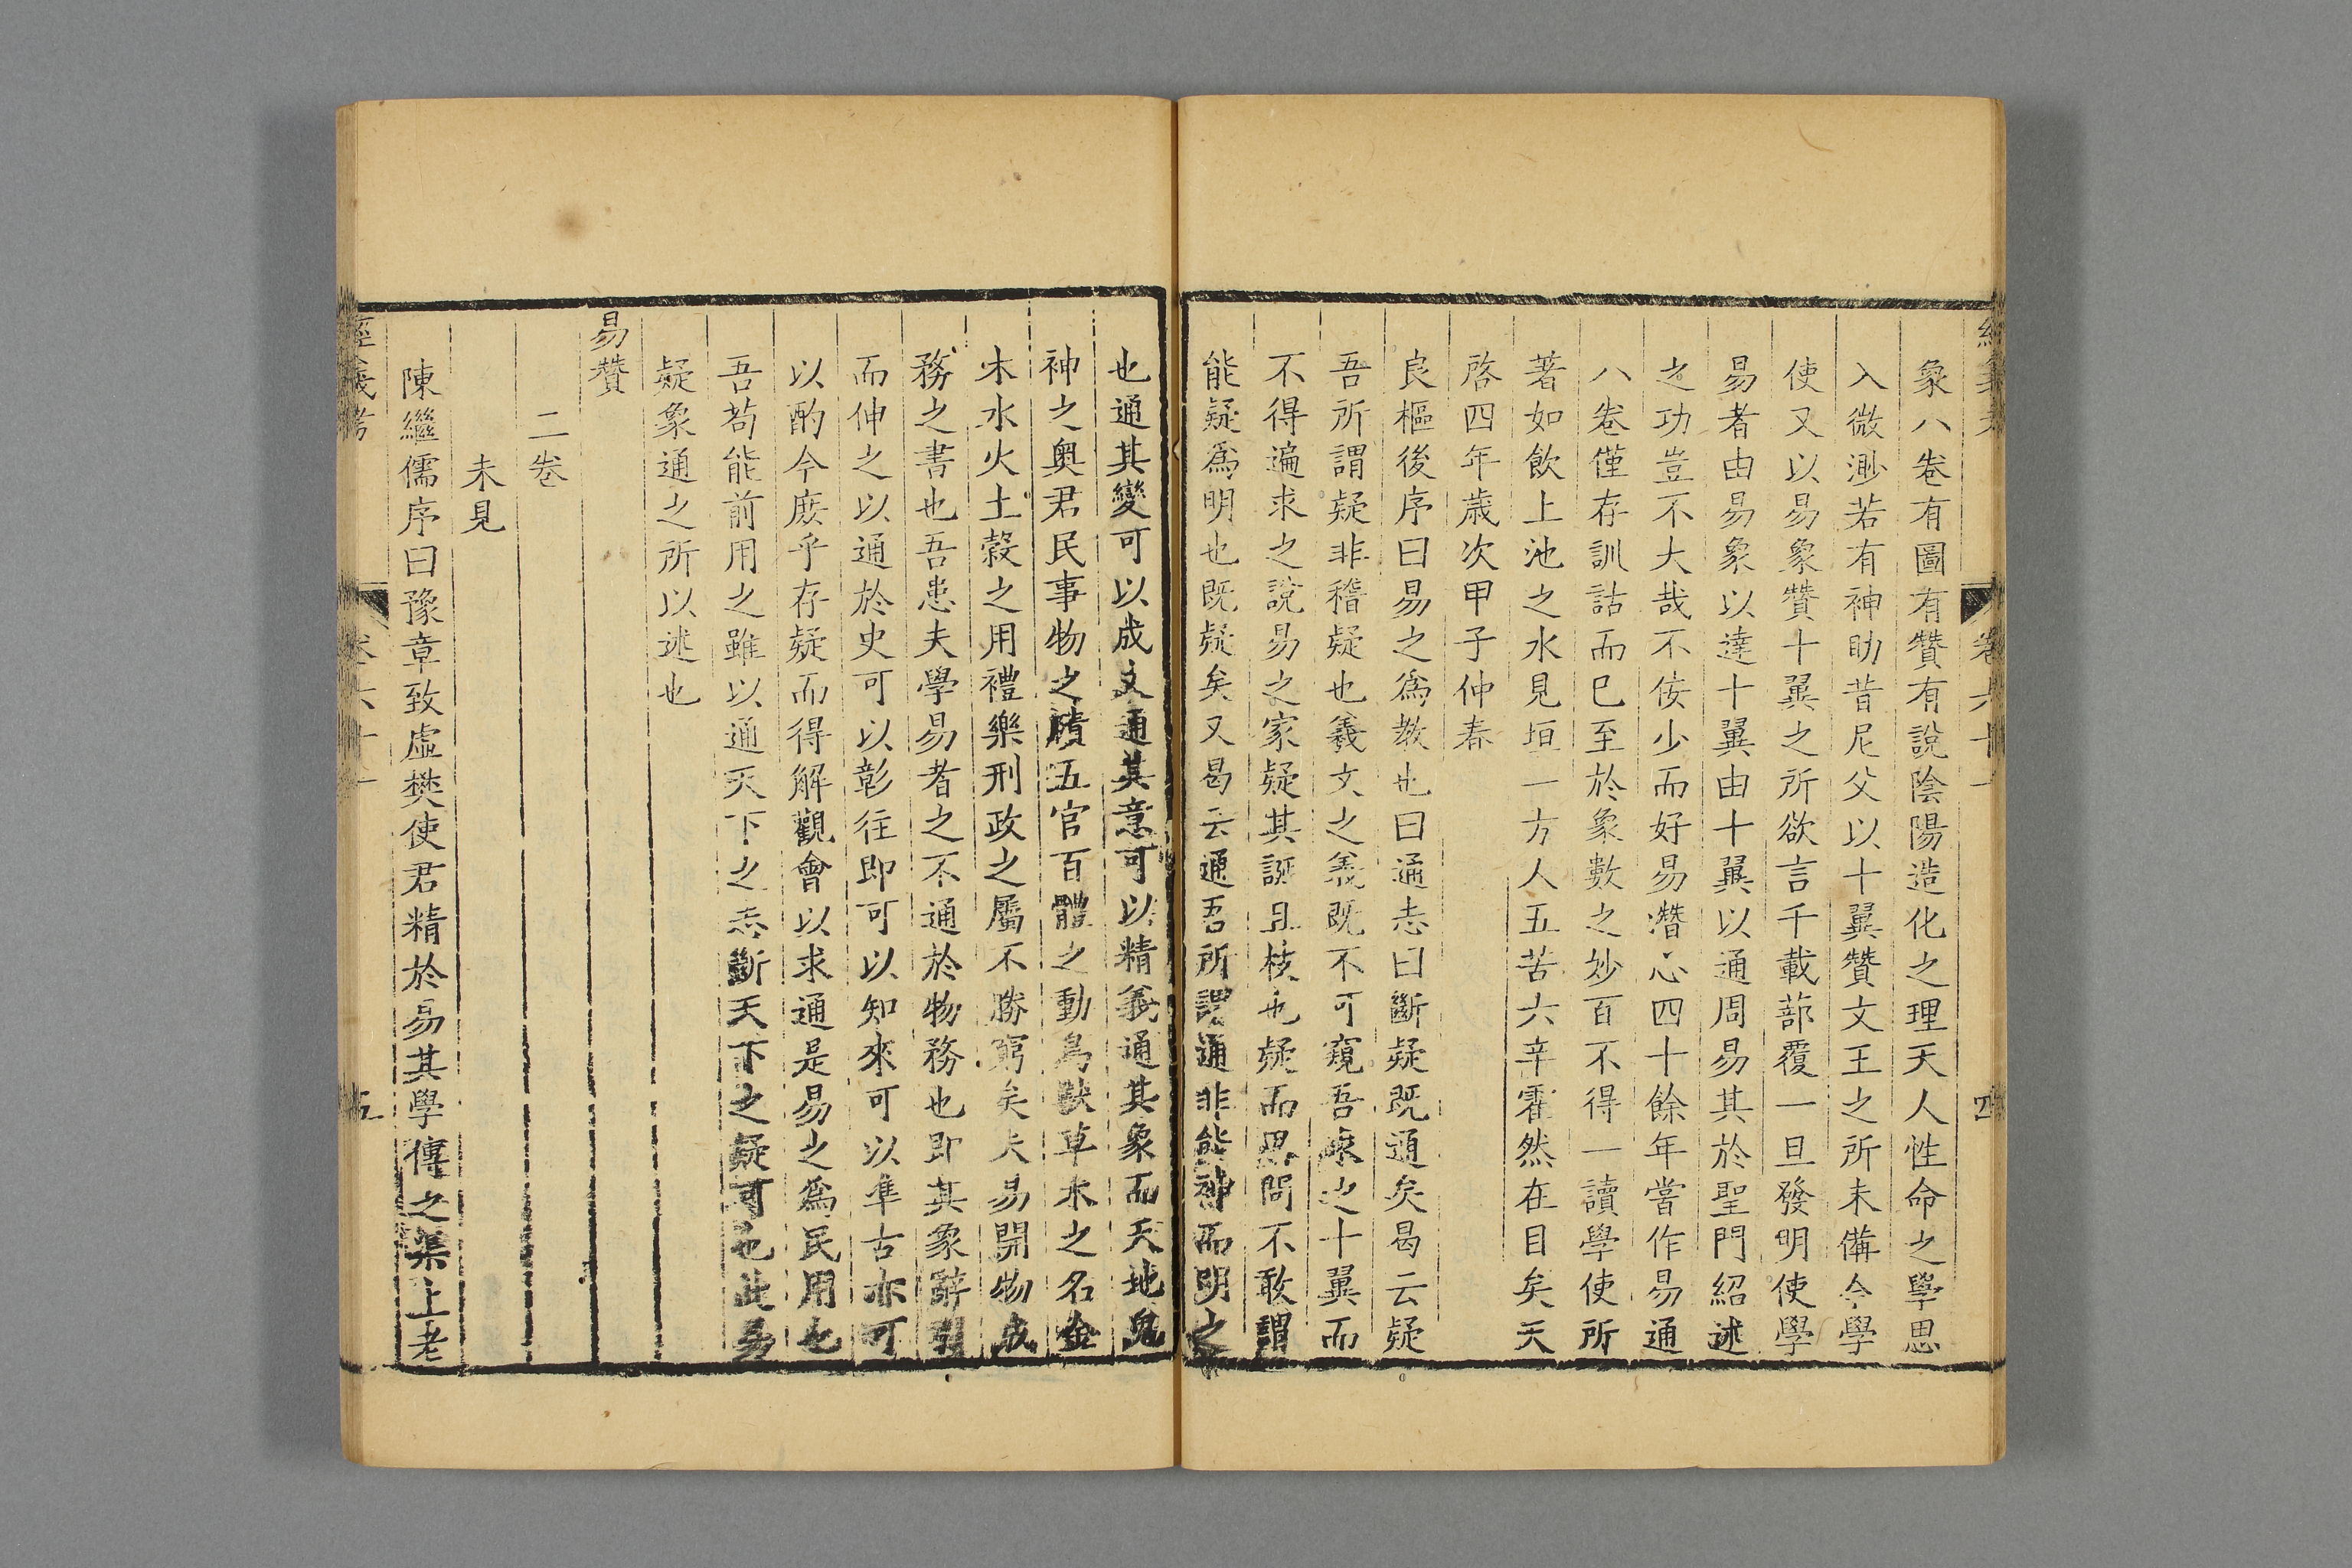 象八卷有圖有贊有說陰陽造化之理天人性命之學思
入微渺若有神助昔尼父以十翼贊文王之所未備今學
使又以易象贊十翼之所欲言千載蔀覆一旦發明使學
易者由易象以達十翼由十翼以通周易其於聖門紹述
之功豈不大哉不佞少而好易潛心四十餘年嘗作易通
八卷僅存訓詁而已至於象數之妙百不得一讀學使所
著如飲上池之水見垣一方人五苦六辛霍然在目矣天
啓四年歲次甲子仲春
良樞後序曰易之為教也曰通志曰斷疑既通矣曷云疑
吾所謂疑非稽疑也羲文之義既不可窺吾疎之十翼而
不得遍求之說易之家疑其誕且枝也疑而思問不敢謂
能疑為明也既疑矣又曷云通吾所謂通非能神而明之
也通其變可以成文通其意可以精義通其象而天地鬼
神之奧君民事物之賾五官百體之動鳥獸草木之名金
木水火土穀之用禮樂刑政之屬不勝窮矣夫易開物成
務之書也吾患夫學易者之不通於物務也即其象辭引
而伸之以通於史可以彰往即可以知來可以準古亦可
以酌今庶乎存疑而得解觀會以求通是易之為民用也
吾茍能前用之雖以通天下之志斷天下之疑可也此易
疑象通之所以述也
易贊
二卷
未見
陳繼儒序曰豫章致虛樊使君精於易其學傳之渠上老
經義考 卷六十一 五